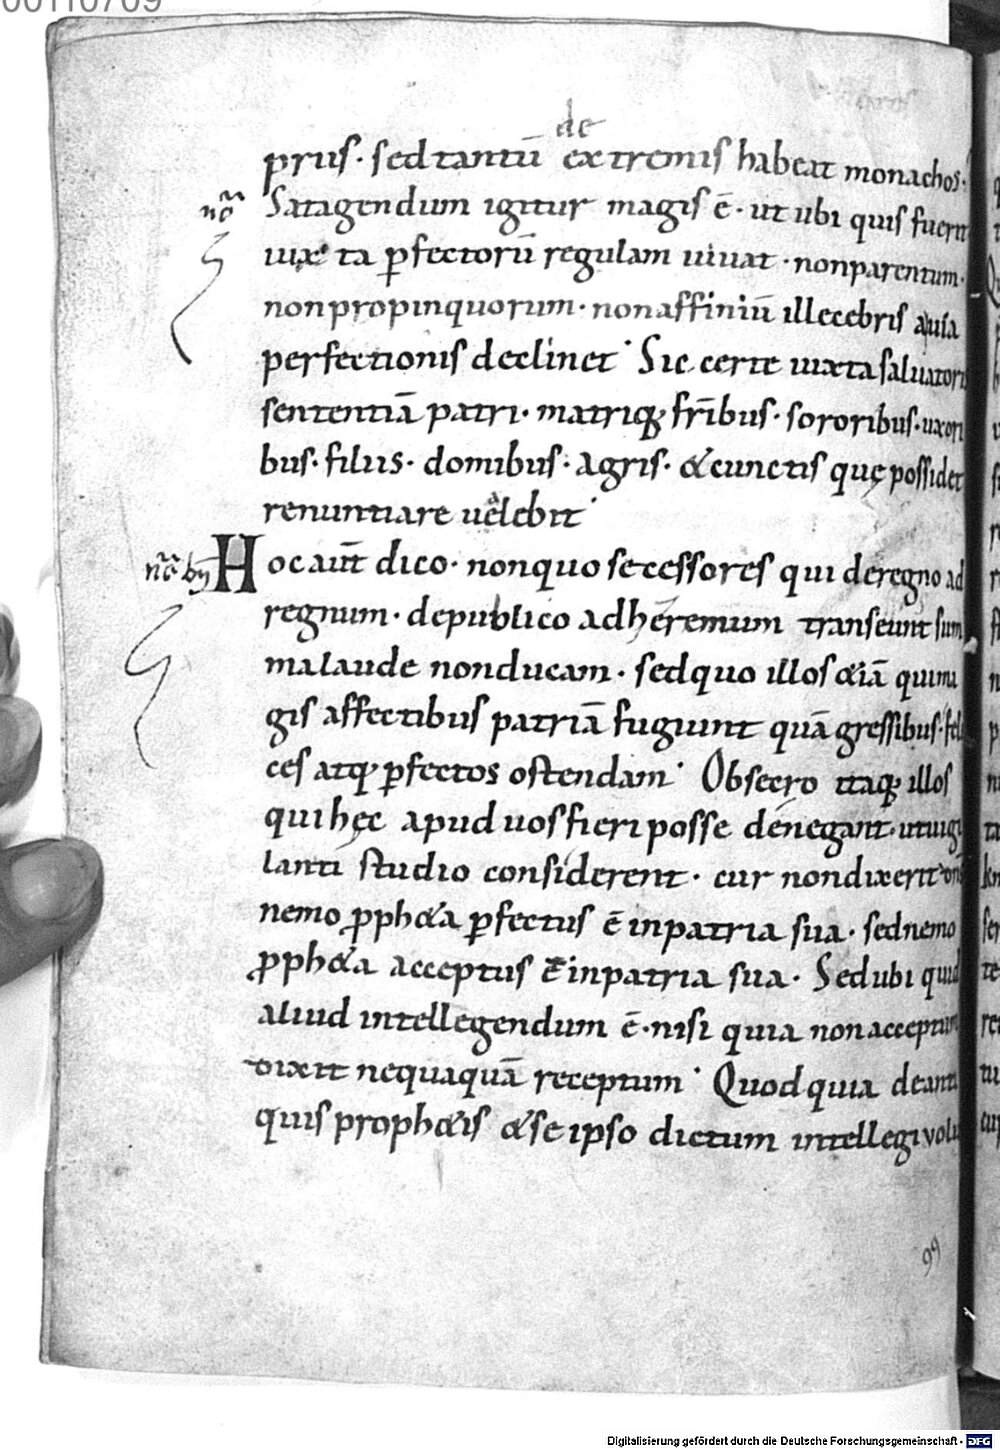 00110709
de
prius· sed tantū extremis habeat monachos·
nō̄ Satagendum igitur magis ē· ut ubi quis fuerit
iuxta ꝑfectorū regulam uiuat· non parentum·
non propinquorum· non affiniū illecebris a uia
perfectionis declinet· Sic certe iuxta saluatoris
sententiā patri· matriq; fr̄ibus· sororibus· uxori
bus· filiis· domibus· agris· & cunctis quę possidet
renuntiare ualebit·
Hoc aūt dico· non quo secessores qui de regno ad
regnum· de publico ad heremum transeunt sum
ma laude non ducam· sed quo illos &iā qui ma
gis affectibus patriā fugiunt quā gressibus· feli
ces atq; ꝑfectos ostendam· Obsecro itaq; illos
qui hęc apud uos fieri posse denegant· ut uigi
lanti studio considerent· cur non dixerit
nemo ꝓph&a ꝑfectus ē in patria sua· sed nemo
ꝓph&a acceptus ē in patria sua· Sed ubi quid
aliud intellegendum ē· nisi quia non acceptum
dixit nequaquā receptum· Quod quia de anti
quis proph&is & se ipso dictum intellegi volu
99
Digitalisierung gefördert durch die Deutsche Forschungsgemeinschaft - DFG